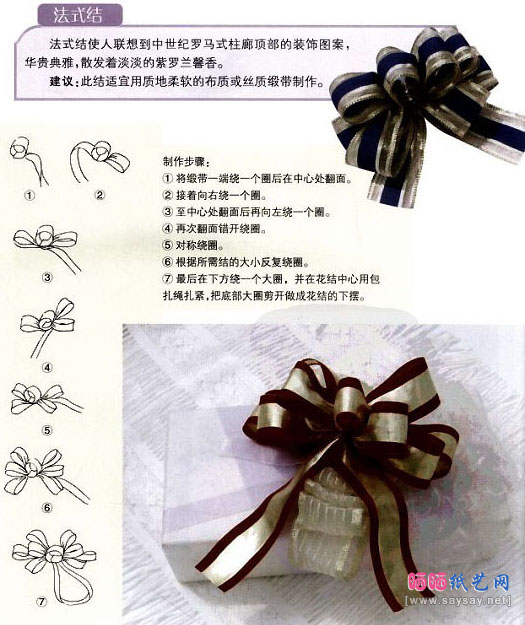 法式结
法式结使人联想到中世纪罗马式柱廊顶部的装饰图案，
华贵典雅，散发着淡淡的紫罗兰馨香。
建议：此结适宜用质地柔软的布质或丝质缎带制作。
制作步骤：
① 将缎带一端绕一个圈后在中心处翻面。
② 接着向右绕一个圈。
③ 至中心处翻面后再向左绕一个圈。
④ 再次翻面错开绕圈。
⑤ 对称绕圈。
⑥ 根据所需结的大小反复绕圈。
⑦ 最后在下方绕一个大圈，并在花结中心用包
扎绳扎紧，把底部大圈剪开做成花结的下摆。
①
②
③
④
⑤
⑥
⑦
晒晒纸艺网
[www.saysay.net]